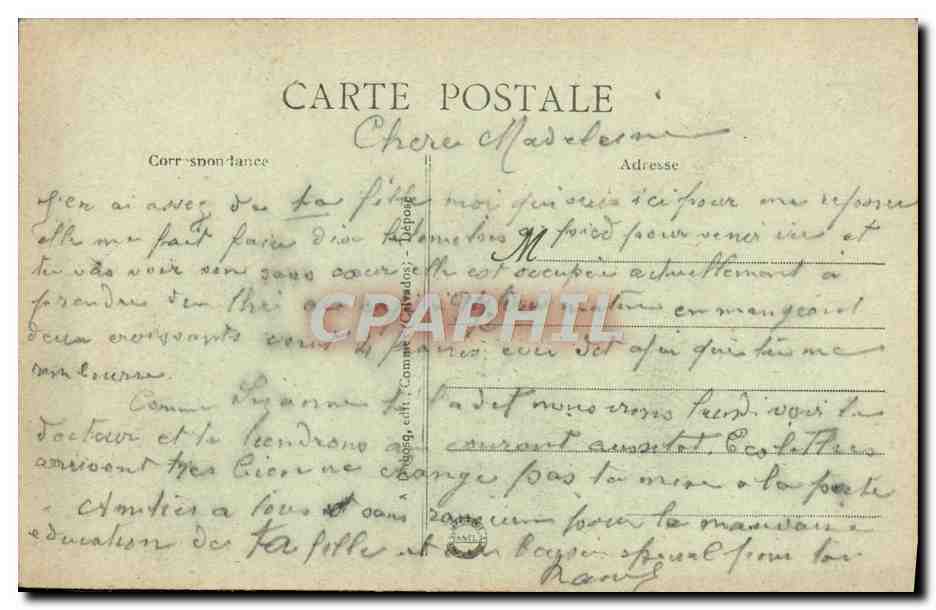 CARTE POSTALE
Chere Madeleine
Correspondance
Adresse
J'en ai assez de ta fille moi qui suis ici pour me reposer
elle me fait faire dix kilometres a pied pour venir ici et
M
tu vas voir son sans coeur elle est occupée actuellement à
prendre du thé nature en mangeant
CPAPHIL
deux croissants 4 francs afin que tu me
rembourse
Comme Suzanne te l'a dit nous irons lundi voir le
docteur et te tiendrons au courant aussitot. Tes lettres
arrivent tres bien ne change pas ta mise a la poste
Amitiés a tous et sans rancune pour la mauvaise
education de ta fille et un baiser special pour toi
Raoul
Gogosq, edit. Comme (Calvados) - Déposé